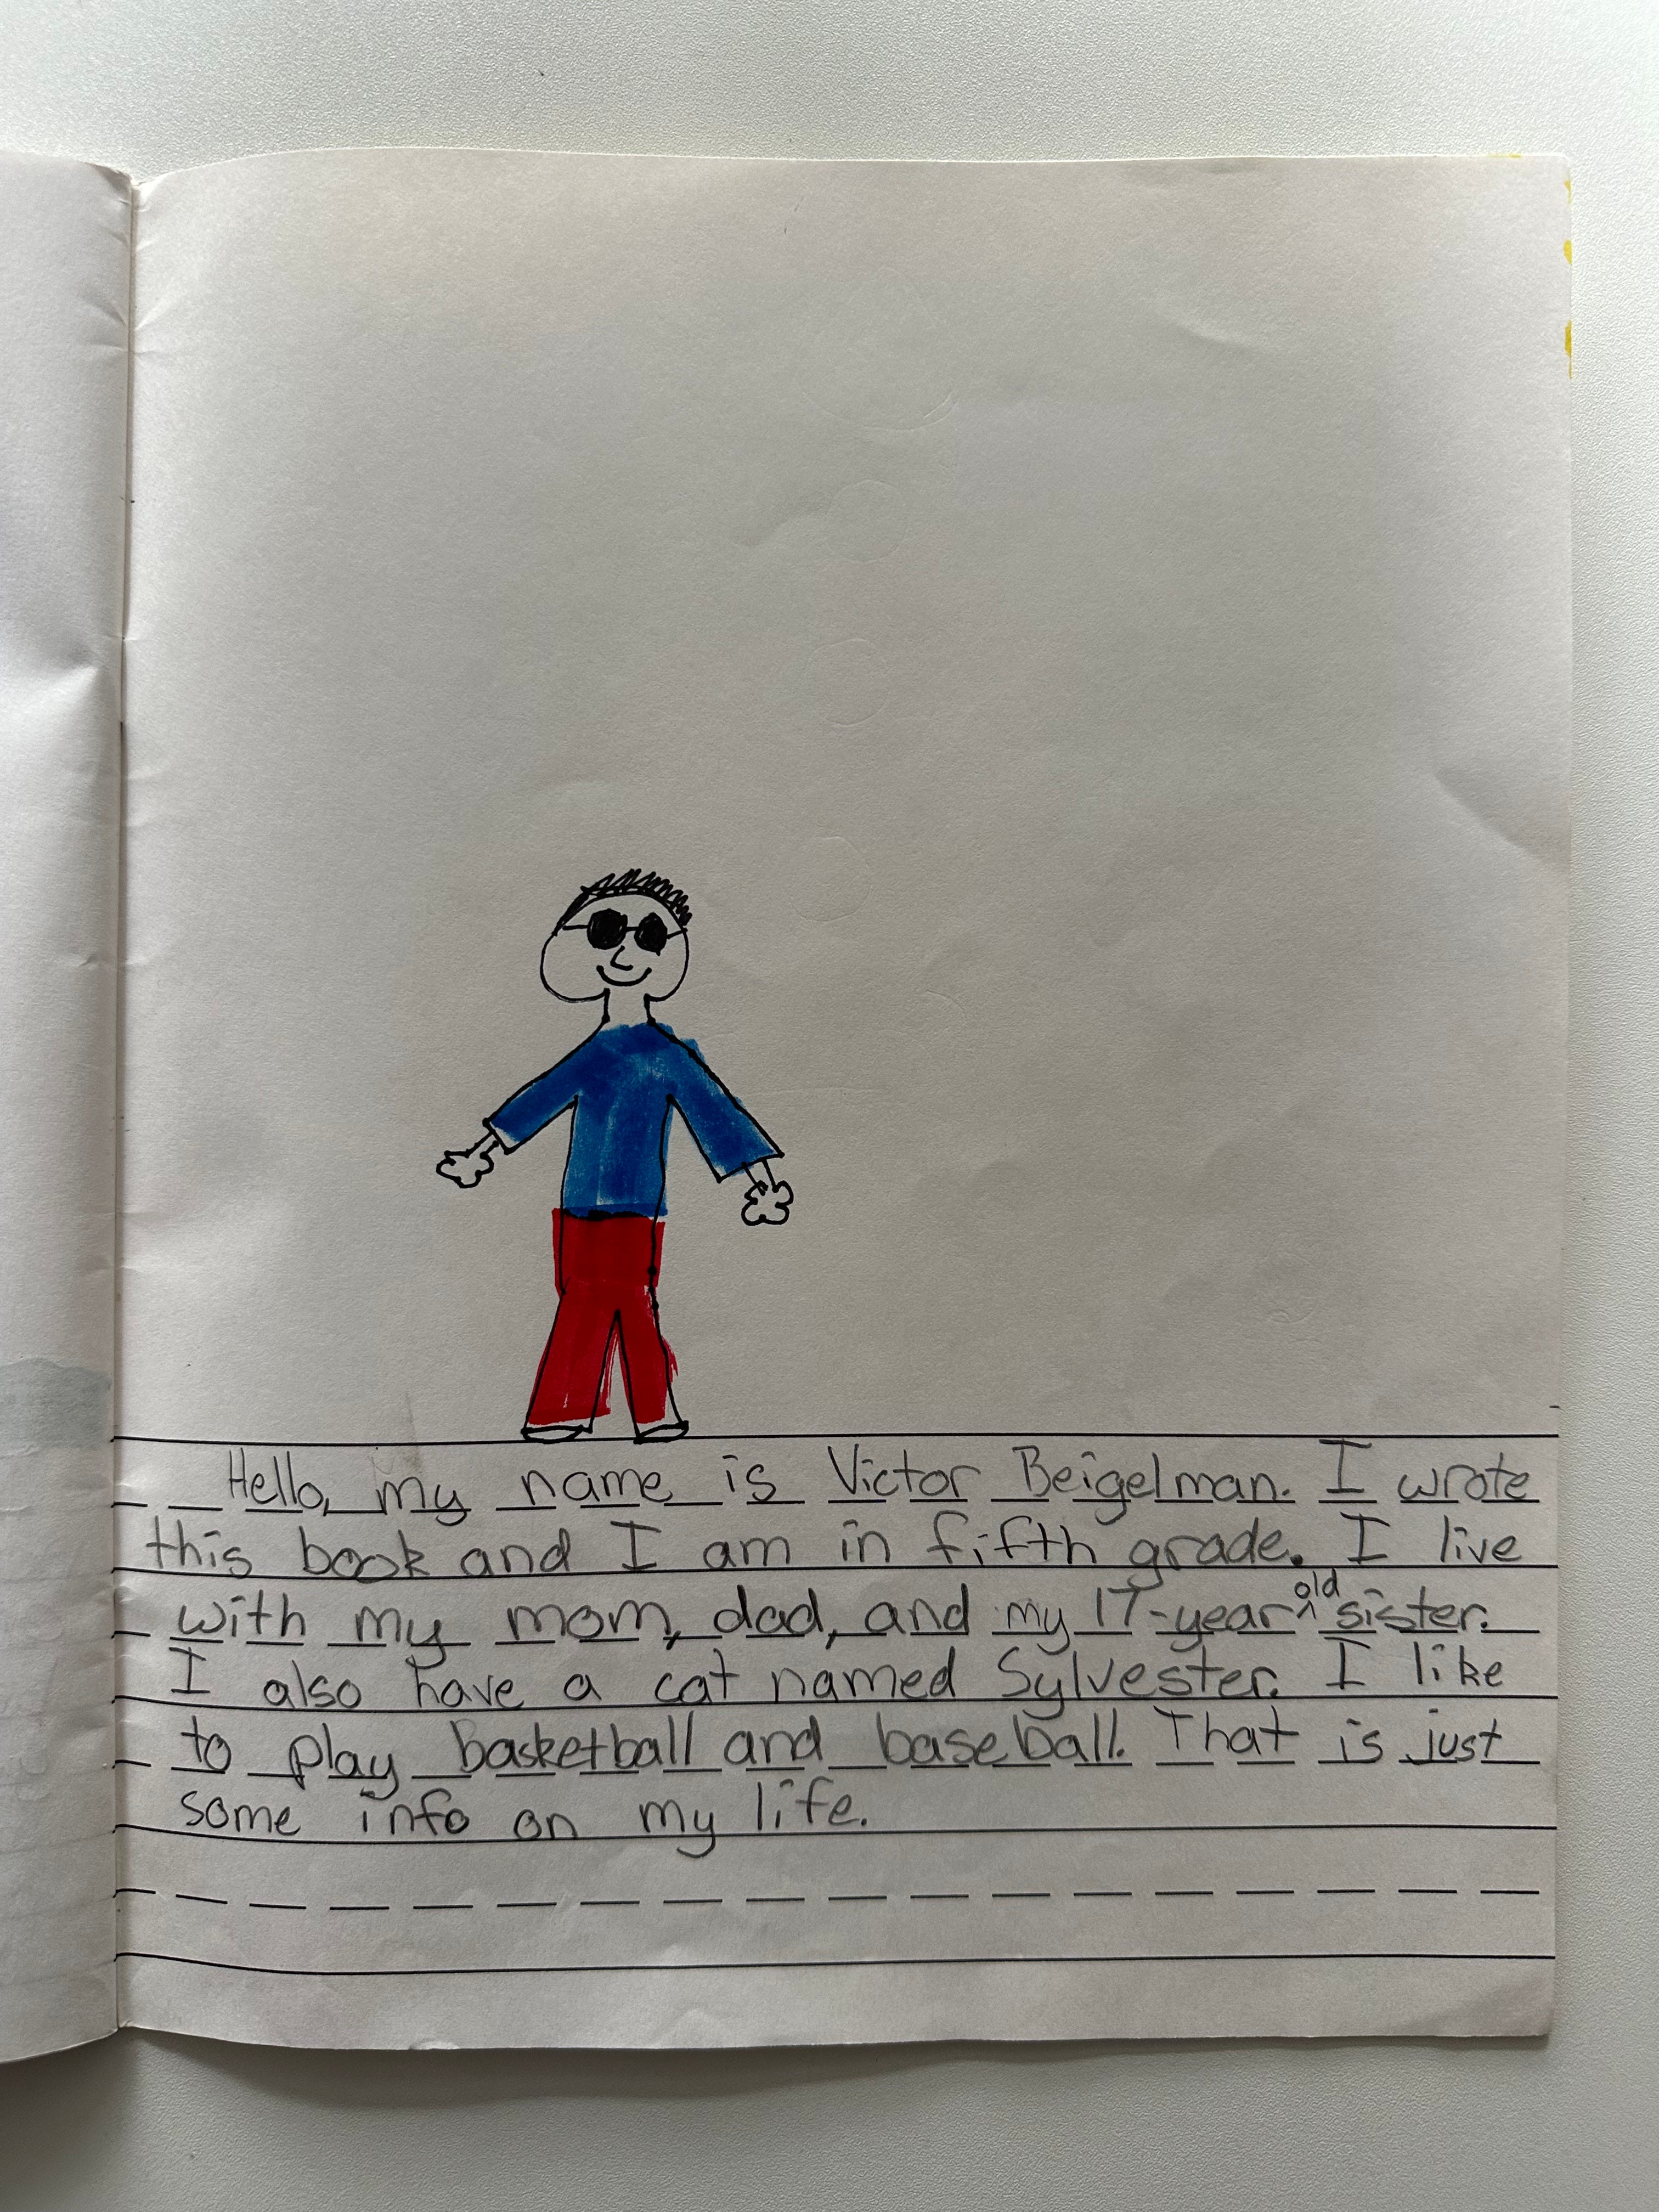 Hello, my name is Victor Beigelman. I wrote
this book and I am in fifth grade. I live
with my mom, dad, and my 17-year old sister.
I also have a cat named Sylvester. I like
to play Basketball and baseball. That is just
some info on my life.